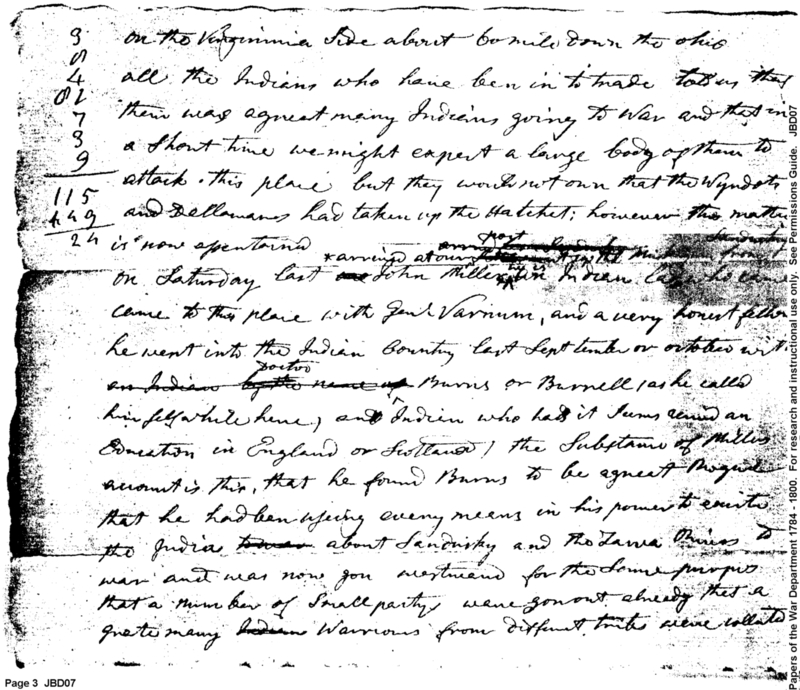 3
8
4
82
7
3
9
115
449
24
on the Virginnia Side about 60 mile down the ohio
all the Indians who have ben in to trade told us that
thear was a great many Indians going to War and that in
a Short time we might expect a large body of them to
attack this place but they would not own that the Wyndots
and Dellawares had taken up the Hatchet; however the matter
is now asentained
post Sandusky
arrived at our from
on Saturday last John Miller an Indian lad who came
came to this place with Genl Varnum, and a very honest fellow
he went into the Indian Country last September or october with
doctor
an Indian by the name of Burns or Burnell (as he called
himself while here, and Indian who had it Sums receivd an
Education in England or Scotland) the Substance of Millers
account is this, that he found Burns to be a great Rogue
that he had ben useing every means in his power to excite
the Indias about Sandusky and the Tawa Rivers to
war and was now gon westward for the Same purpos
that a number of Small partys ware gon out already that a
grate many Indian Warriours from diffrent tribes were collated
Page 3 JBD07
Papers of the War Department 1784 - 1800. For research and instructional use only. See Permissions Guide. JBD07